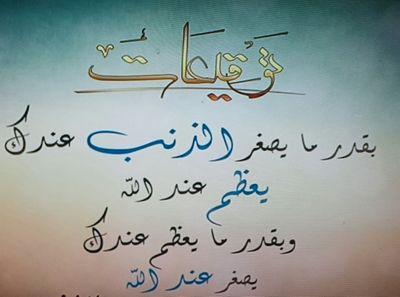 توقيعات
بقدر ما يصغر الذنب عندك
يعظم عند الله
وبقدر ما يعظم عندك
يصغر عند الله